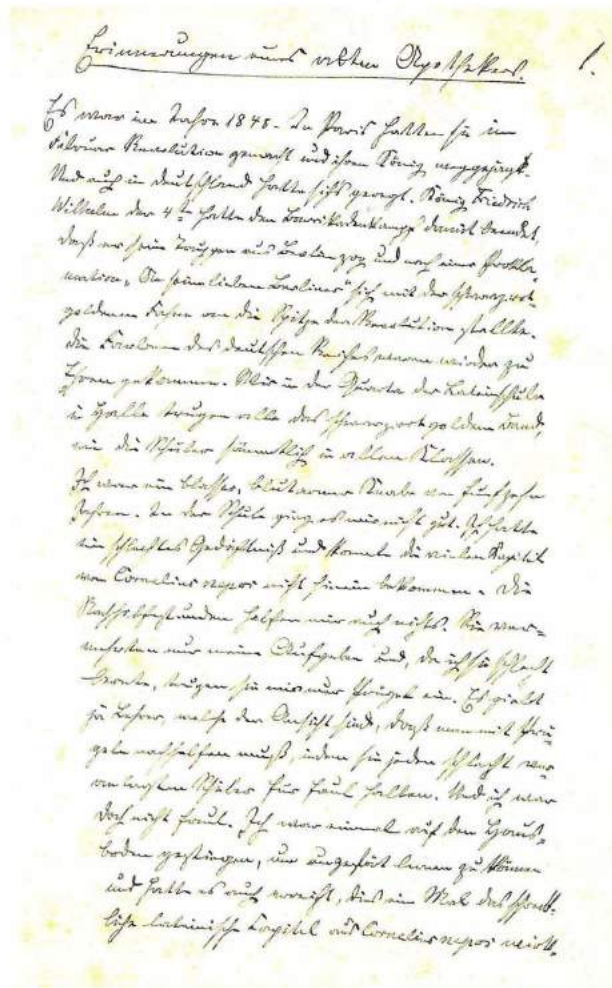 Erinnerungen eines alten Apothekers. 1.
Es war im Jahre 1848. In Paris hatten sie im
Februar Revolution gemacht und ihren König weggejagt.
Und auch in Deutschland hatte sich's geregt. König Friedrich
Wilhelm der 4te hatte den Barrikadenkampf damit beendet,
daß er seine Truppen aus Berlin zog und nach einer Prokla-
mation „An seine lieben Berliner" sich mit der schwarzrot-
goldenen Fahne an die Spitze der Revolution stellte.
Die Farben des deutschen Reiches waren wieder zu
Ehren gekommen. Wir in der Quarta der Lateinschule
in Halle trugen alle das schwarzrotgoldene Band,
wie die Schüler sämmtlich in allen Klassen.
Ich war ein blasser, blutarmer Knabe von fünfzehn
Jahren. In der Schule ging es mir nicht gut. Ich hatte
ein schlechtes Gedächtniß und konnte die vielen Kapitel
von Cornelius nepos nicht hinein bekommen. Die
Nachhilfestunden halfen mir auch nichts. Sie ver-
mehrten nur meine Aufgaben und, da ich sie schlecht
lernte, trugen sie mir nur Prügel ein. Es giebt
ja Lehrer, welche der Ansicht sind, daß man mit Prü-
geln nachhelfen muß, indem sie jeden schlecht ver-
anlagten Schüler für faul halten. Und ich war
doch nicht faul. Ich war einmal auf den Haus-
boden gestiegen, um ungestört lernen zu können
und hatte es auch erreicht, dies eine Mal das schreck-
liche lateinische Kapitel aus Cornelius nepos wirk-